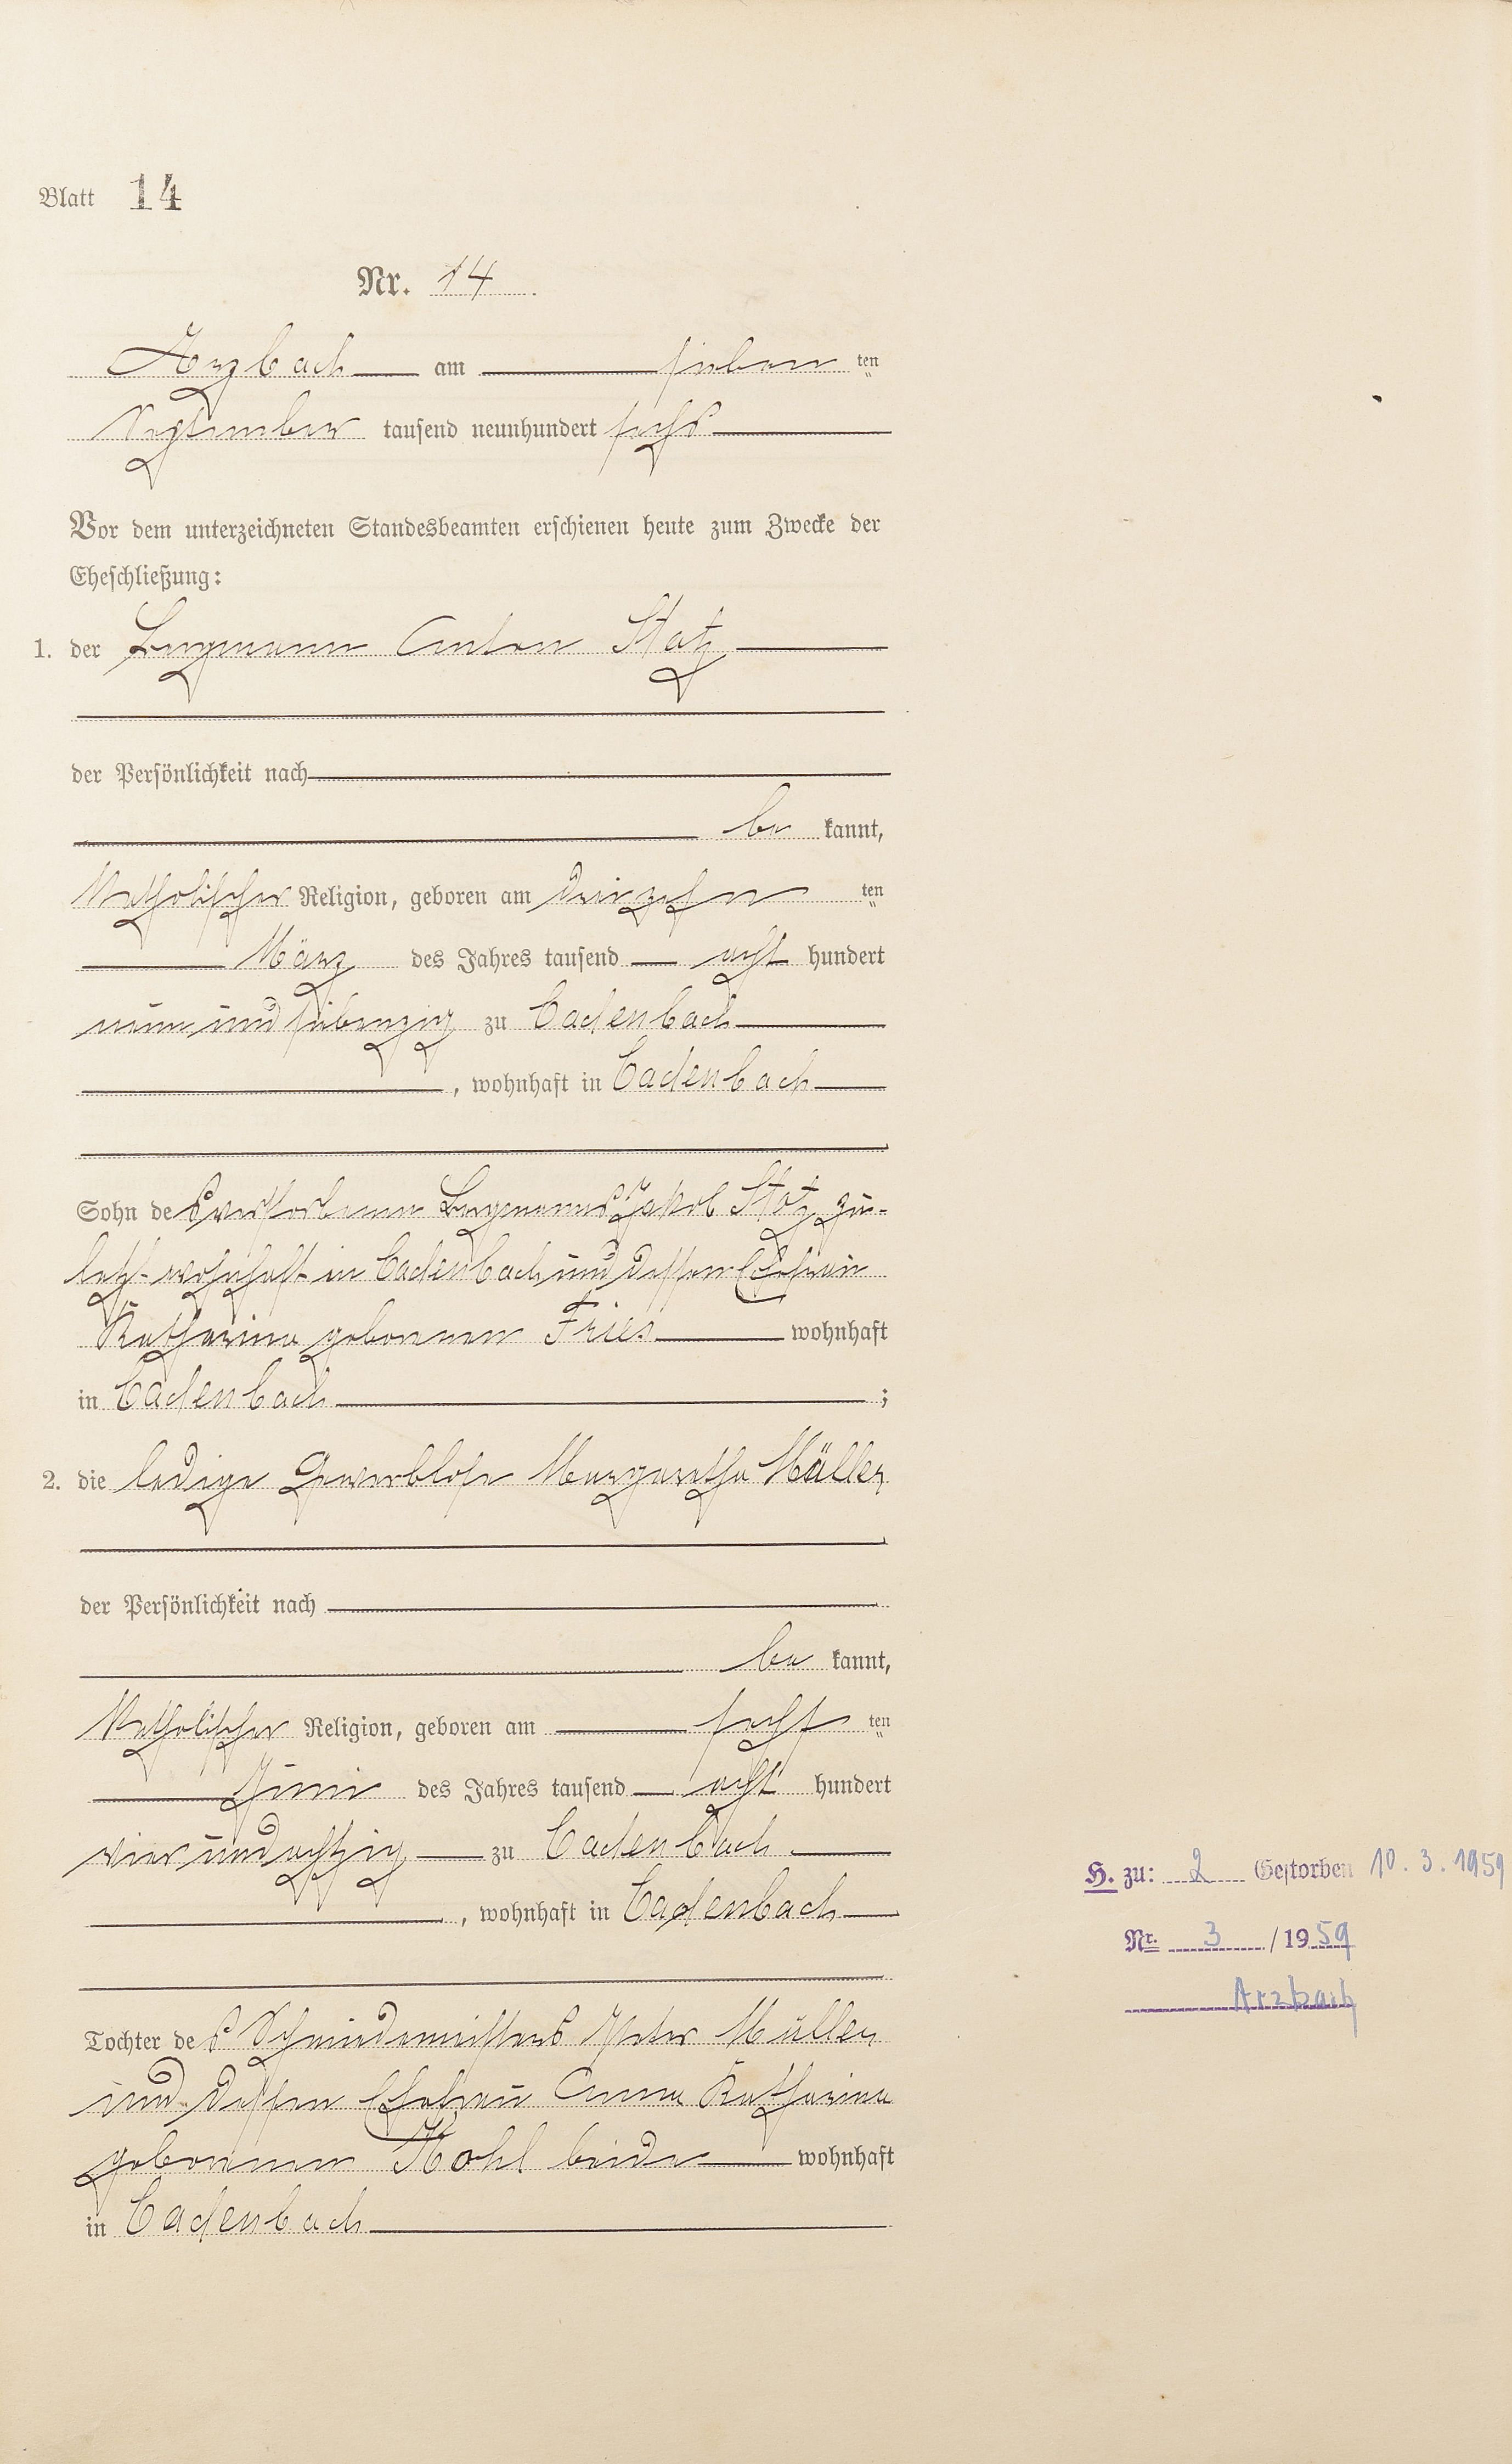 Blatt 14
Nr. 14.
Arzbach am sieben ten
September tausend neunhundert sechs
Vor dem unterzeichneten Standesbeamten erschienen heute zum Zwecke der
Eheschließung:
1. der Bergmann Anton Statz
der Persönlichkeit nach
be kannt,
Katholischer Religion, geboren am dreizehn ten
März des Jahres tausend acht hundert
neun und siebenzig zu Cadenbach
, wohnhaft in Cadenbach
Sohn des verstorbenen Bergmanns Jakob Statz, zu-
letzt wohnhaft in Cadenbach und dessen Ehefrau
Katharina geborenen Fries wohnhaft
in Cadenbach ;
2. die ledige Gewerblose Margaretha Müller
der Persönlichkeit nach
be kannt,
Katholischer Religion, geboren am sechs ten
Juni des Jahres tausend acht hundert
vier und achtzig zu Cadenbach
, wohnhaft in Cadenbach
Tochter des Schmiedemeisters Peter Müller
und dessen Ehefrau Anna Katharina
geborenen Kohl beide wohnhaft
in Cadenbach
H. zu: 2 Gestorben 10.3.1959
Nr. 3 /1959
Arzbach